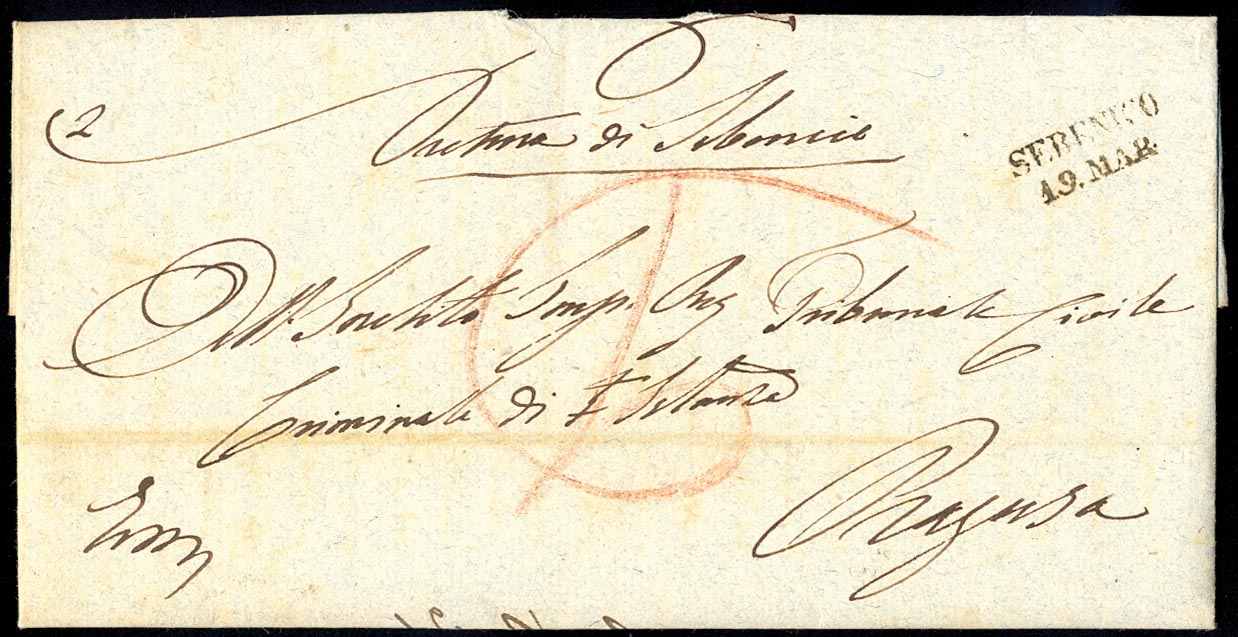 2
Pretura di Sebenico
SEBENICO
19. MAR.
Dell' Imp. Reg. Tribunale Civile
Criminale di Istanza
Ragusa